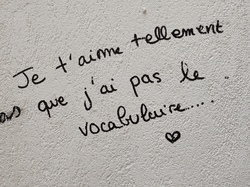 Je t'aime tellement
que j'ai pas le
vocabulaire.....